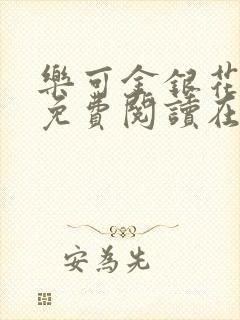 樂可金銀花
免費閱讀在
安為先